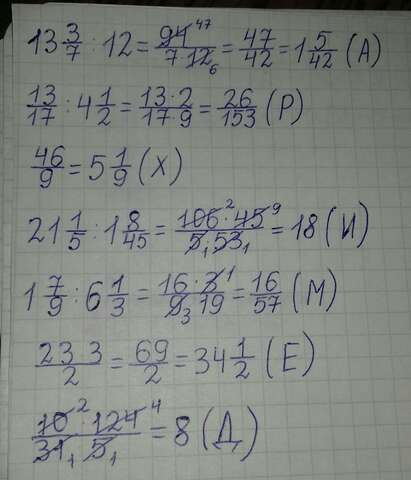 13 3/7 : 12 = 94 47 / 7·12 6 = 47/42 = 1 5/42 (А)
13/17 : 4 1/2 = 13·2 / 17·9 = 26/153 (Р)
46/9 = 5 1/9 (Х)
21 1/5 : 1 8/45 = 106 2 · 45 9 / 5 1 · 53 1 = 18 (И)
1 7/9 : 6 1/3 = 16·3 1 / 9 3 19 = 16/57 (М)
23 3 / 2 = 69/2 = 34 1/2 (Е)
10 2 · 124 4 / 31 1 5 1 = 8 (Д)